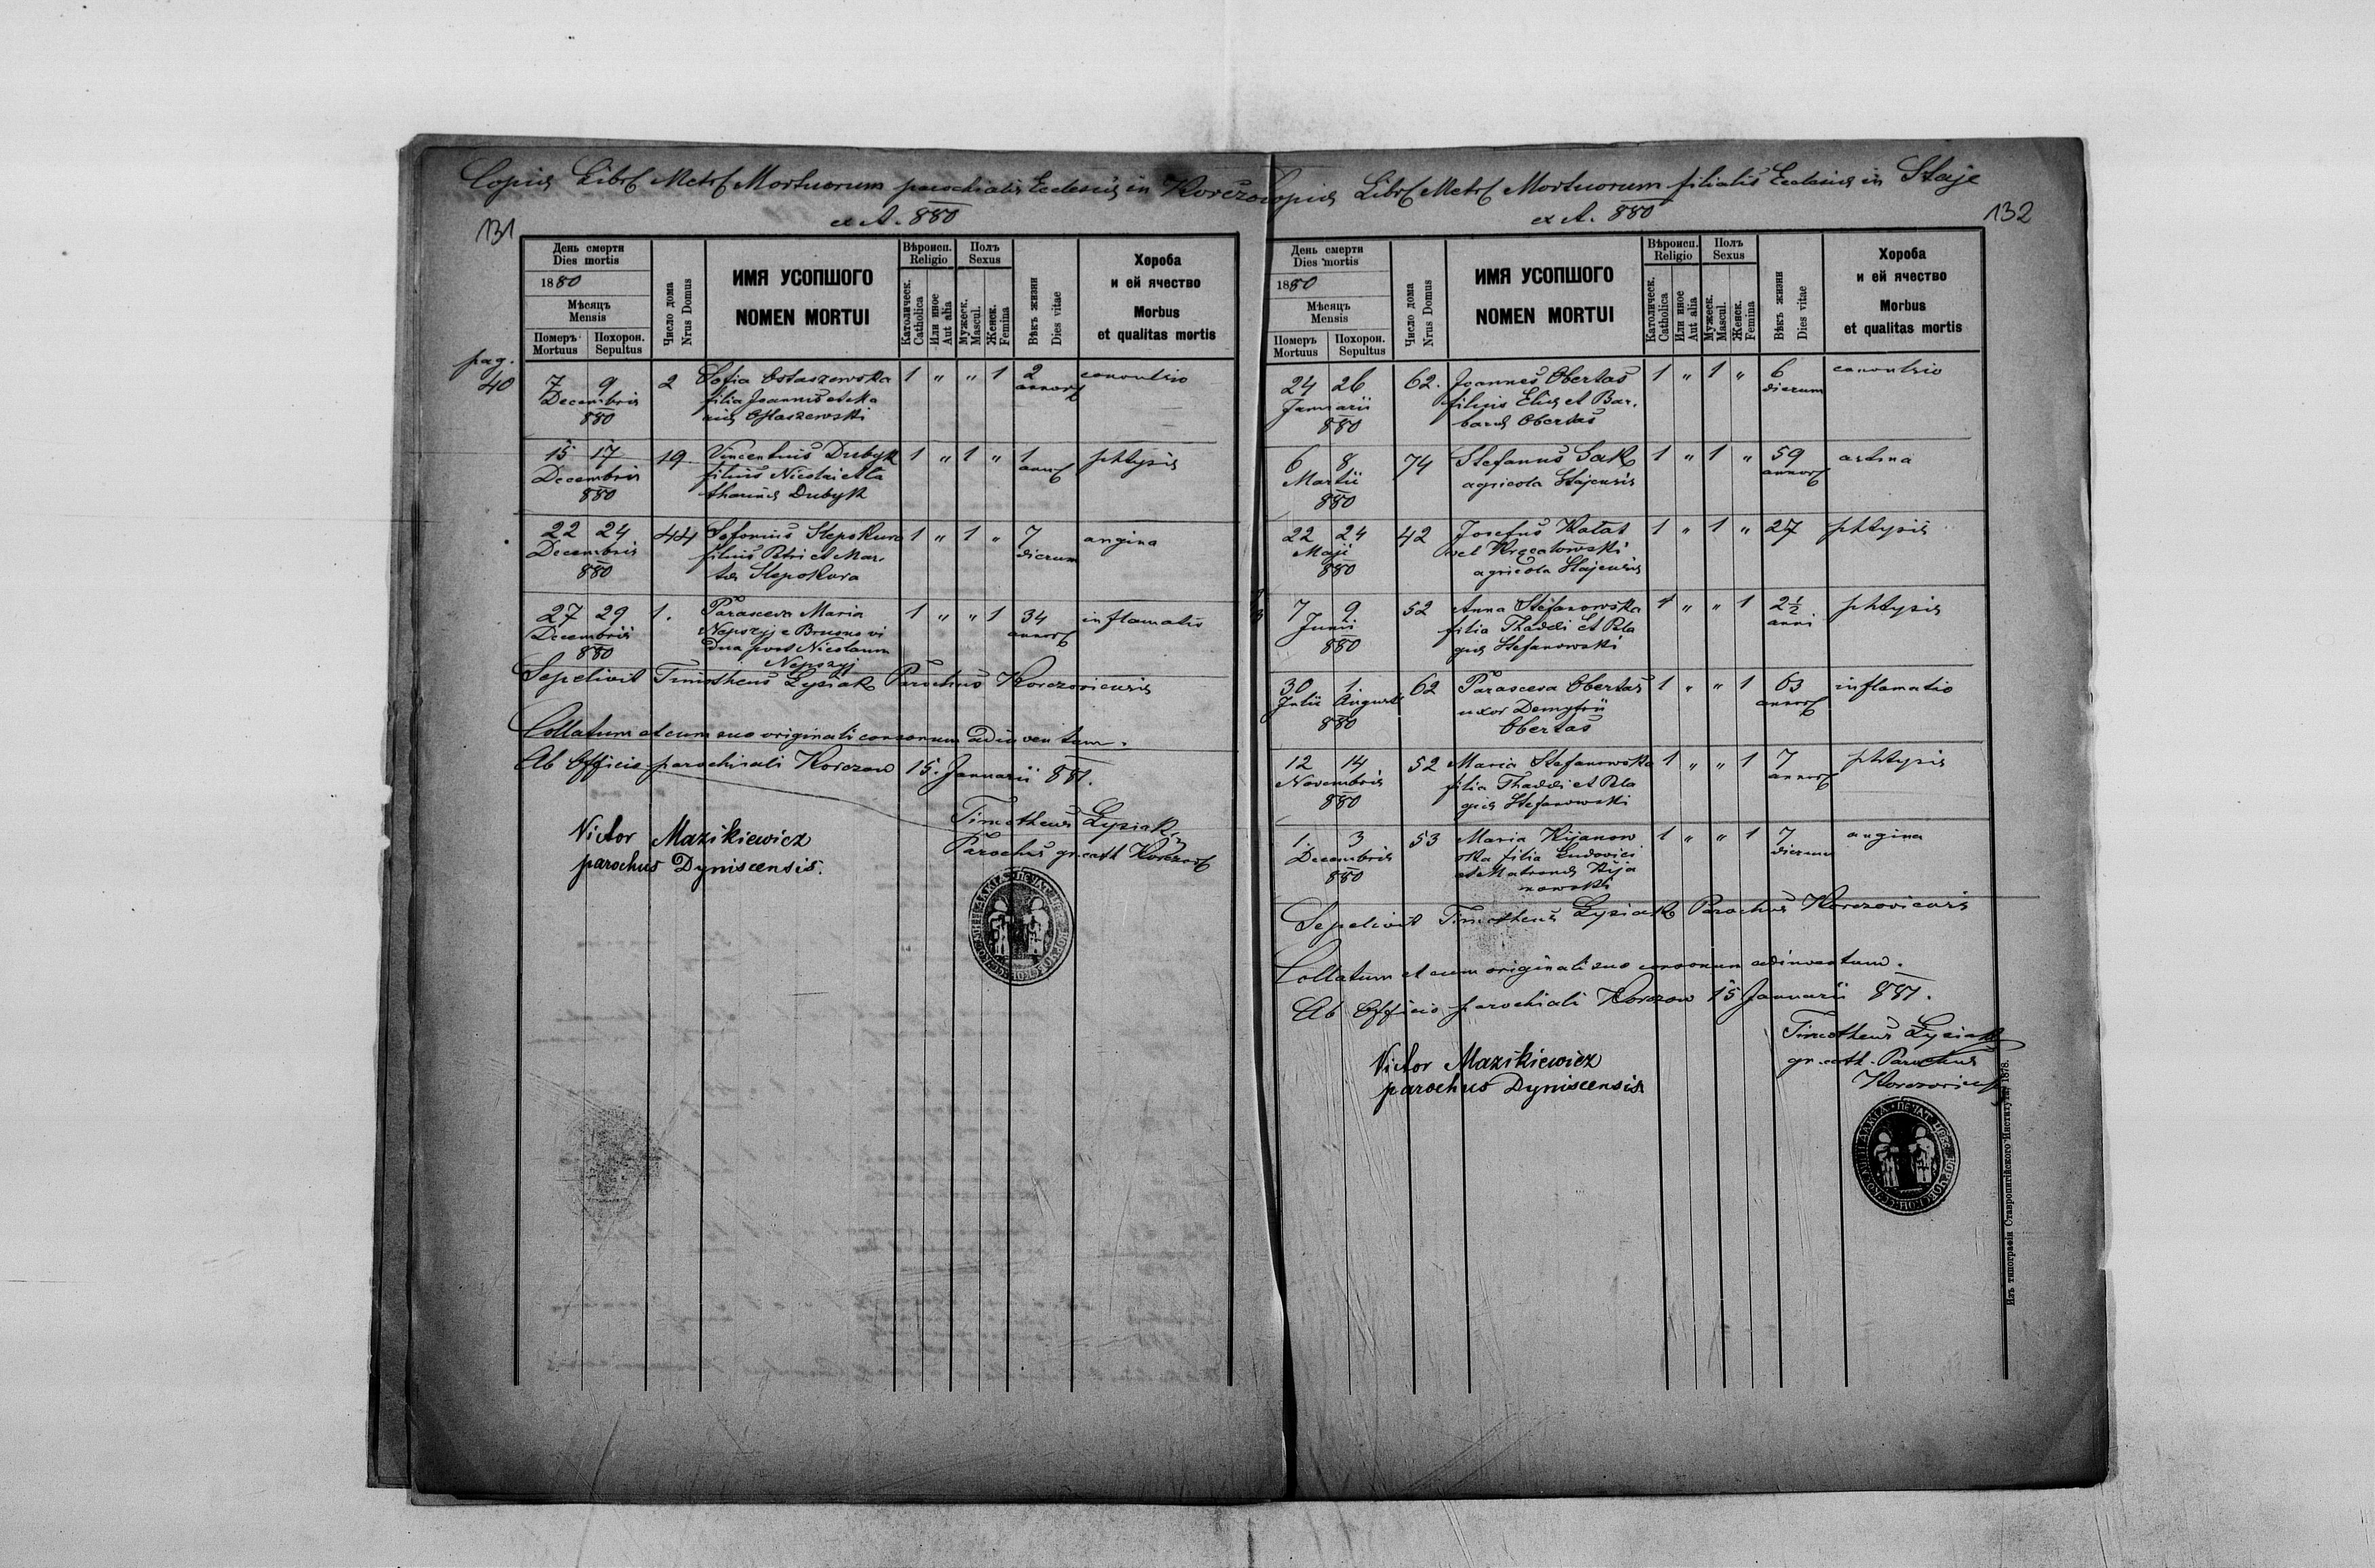 Copia Libr Metr Mortuorum parochialis Ecclesiæ in Korczow
ex A. 880
131
День смерти
Dies mortis
1880
Мѣсяцъ
Mensis
Померъ Похорон.
Mortuus Sepultus
Число дома
Nrus Domus
ИМЯ УСОПШОГО
NOMEN MORTUI
Вѣроисп.
Religio
Католическ.
Catholica
Или иное
Aut alia
Полъ
Sexus
Мужеск.
Mascul.
Женск.
Femina
Вѣкъ жизни
Dies vitae
Хороба
и ей ячество
Morbus
et qualitas mortis
pag.
40
7 9 2 Sofia Ostaszewska 1 " " 1 2
Decembris filia Joannis et Ma annor
880 riæ Ostaszewski
15 17 19 Vincentius Dubyk 1 " 1 " 1 phtysis
Decembris filius Nicolai et Ca
880 tharinæ Dubyk
22 24 44 Sofonius Slepokura 1 " 1 " 7 angina
Decembris filius Petri et Mar dierum
880 tæ Slepokura
27 29 1. Parasceva Maria 1 " " 1 34 inflamatio
Decembris annor
880 dua post Nicolaum
Sepelivit Timotheus Łysiak Parochus Korczoviensis
Collatum et cum suo originali consonum adinventum.
Ab Officio parochiali Korczow 15. Januarii 881.
Timotheus Łysiak
Parochus gr. cath Korczov
Victor Mazikiewicz
parochus Dyniscensis.
Copia Libr Metr Mortuorum filialis Ecclesiæ in Staje
ex A. 880
132
День смерти
Dies mortis
1880
Мѣсяцъ
Mensis
Померъ Похорон.
Mortuus Sepultus
Число дома
Nrus Domus
ИМЯ УСОПШОГО
NOMEN MORTUI
Вѣроисп.
Religio
Католическ.
Catholica
Или иное
Aut alia
Полъ
Sexus
Мужеск.
Mascul.
Женск.
Femina
Вѣкъ жизни
Dies vitae
Хороба
и ей ячество
Morbus
et qualitas mortis
24 26 62. Joannes Obertas 1 " 1 " 6
Januarii filius Eliæ et Bar dierum
880 baræ Obertas
6 8 74 Stefanus Sak 1 " 1 " 59 astma
Martii agricola Stajensis annor
880
22 24 42 Josefus 1 " 1 " 27 phtysis
Maji vel
880 agricola Stajensis
7 9 52 Anna Stefanowska 1 " " 1 2½ phtysis
Junii filia Thaddei et Pela anni
880 giæ Stefanowski
30 1. 62 Parasceva Obertas 1 " " 1 63 inflamatio
Julii Augusti uxor Demytrii annor
880 Obertas
12 14 52 Maria Stefanowska 1 " " 1 7 phtysis
Novembris filia Thaddei et Pela annor
880 giæ Stefanowski
1. 3 53 Maria Kijanow 1 " " 1 7 angina
Decembris ska filia Ludovici dierum
880 et Matronæ Kija
nowski
Sepelivit Timotheus Łysiak Parochus Korczoviensis
Collatum et cum originali suo consonum adinventum.
Ab Officio parochiali Korczow 15 Januarii 881.
Timotheus Łysiak
gr. cath. Parochus
Victor Mazikiewicz
parochus Dyniscensis
Изъ типографіи Ставропигійского Института, 1878.